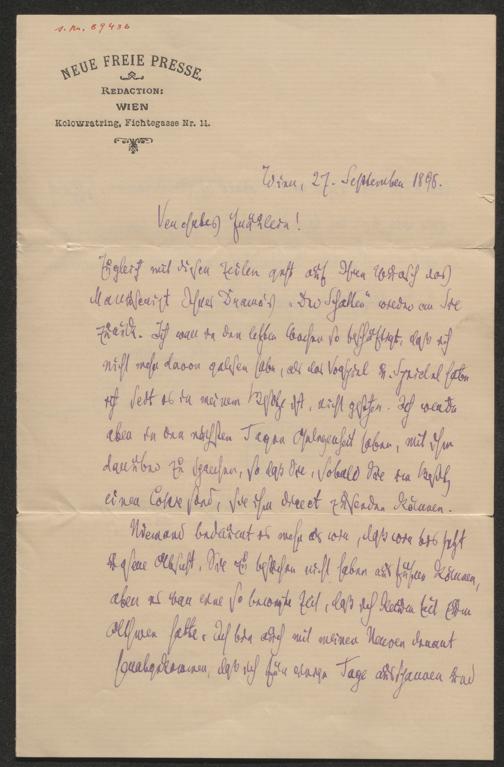 I. Nr. 69436
NEUE FREIE PRESSE.
REDACTION:
WIEN
Kolowratring, Fichtegasse Nr. 11.
Wien, 27. September 1898.
Verehrtes Fräulein!
Zugleich mit diesen Zeilen geht auf Ihren Wunsch das
Manuscript Ihres Drama's „Der Schatten“ wieder an Sie
zurück. Ich war in den letzten Wochen so beschäftigt, daß ich
nicht mehr davon gelesen habe, als das Vorspiel. Speidel habe
ich seit es in meinem Besitze ist, nicht gesehen. Ich werde
aber in den nächsten Tagen Gelegenheit haben, mit ihm
darüber zu sprechen, so daß Sie, sobald Sie im Besitz
einer Copie sind, sie ihm direct zusenden können.
Niemand bedauert es mehr als wir, daß wir bis jetzt
Absicht, Sie zu besuchen nicht haben ausführen können,
aber es war eine so bewegte Zeit, daß ich kaum Zeit zum
Athmen hatte. Ich bin auch mit meinen Nerven derart
herabgekommen, daß ich für einige Tage ausspannen und